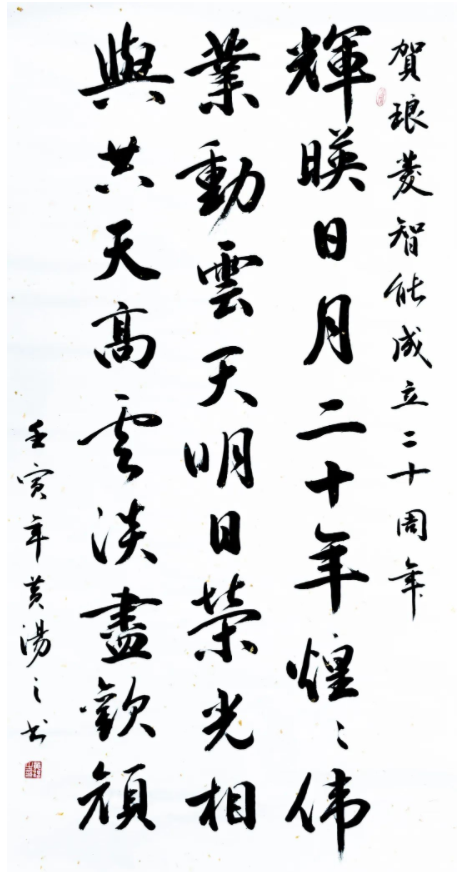 賀琅菱智能成立二十周年
輝暎日月二十年煌〻伟
業動雲天明日榮光相
與共天高雲淡盡歡顔
壬寅年黄湯之书